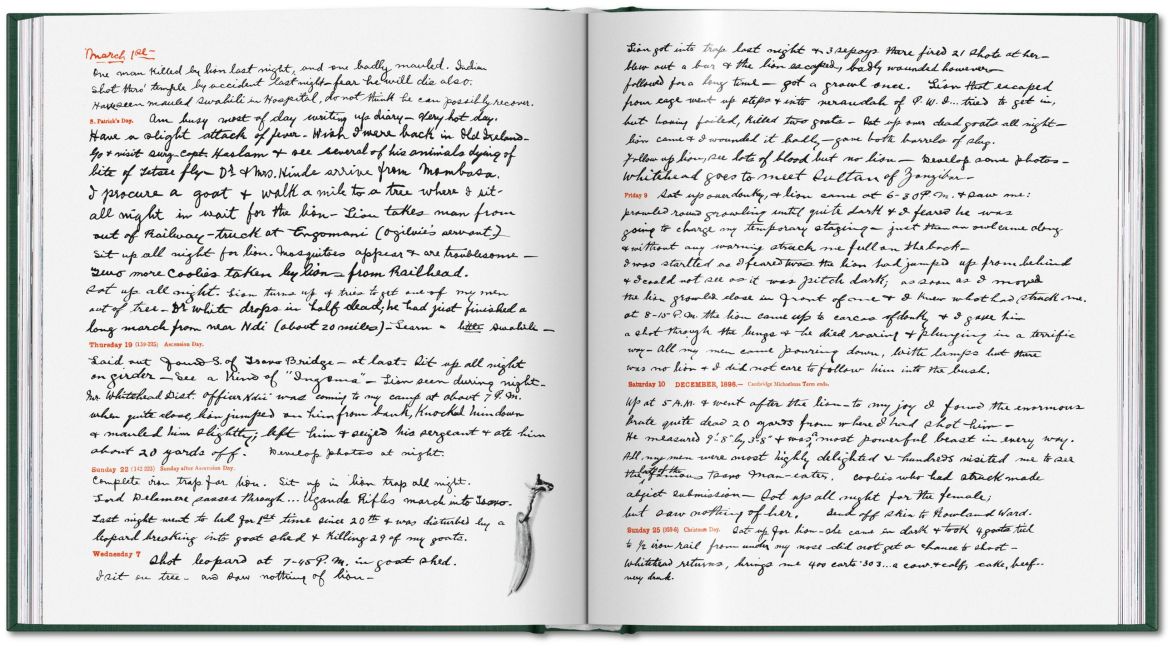 March 1st—
One man killed by lion last night, and one badly mauled. Indian
shot thro' temple by accident last night — fear he will die also.
Have seen mauled Swahili in Hospital, do not think he can possibly recover.
S. Patrick's Day. Am busy most of day writing up diary — Very hot day.
Have a slight attack of fever. Wish I were back in Old Ireland—
Go & visit Surg. Capt. Haslam & see several of his animals dying of
bite of Tsetse fly — Dr & Mrs. Hinde arrive from Mombasa.
I procure a goat & walk a mile to a tree where I sit
all night in wait for the lion — Lion takes man from
out of Railway-truck at Engomani (Ogilvie's servant)
Sit up all night for lion. Mosquitoes appear & are troublesome —
Two more coolies taken by lion — from Railhead.
Sat up all night. Lion turns up & tries to get one of my men
out of tree — Dr White drops in half dead; he had just finished a
long march from near Ndi (about 20 miles) — Learn a little Swahili —
Thursday 19 (139-225) Ascension Day.
Laid out found S. of Tsavo Bridge — at last. Sit up all night
on girder — See a kind of "Ingoma" — Lion seen during night —
Mr. Whitehead Dist. Officer Ndi was coming to my camp at about 7 P.M.
when quite close, lion jumped on him from bank, knocked him down
& mauled him slightly; left him & seized his sergeant & ate him
about 20 yards off. Develop photos at night.
Sunday 22 (142-223) Sunday after Ascension Day.
Complete iron trap for lion. Sit up in lion trap all night.
Lord Delamere passes through... Uganda Rifles march into Tsavo.
Last night went to bed for 1st time since 20th & was disturbed by a
leopard breaking into goat shed & killing 29 of my goats.
Wednesday 7 Shot leopard at 7-45 P.M. in goat shed.
I sit on tree — and saw nothing of lion —
Lion got into trap last night & 3 sepoys there fired 21 shots at her —
blew out a bar & the lion escaped, badly wounded however —
followed for a long time — got a growl once. Lion that escaped
from cage went up steps & into verandah of P.W.I... tried to get in,
but having failed, killed two goats — Sat up over dead goats all night —
lion came & I wounded it badly — gave both barrels of slug.
Follow up lion, see lots of blood but no lion — Develop some photos —
Whitehead goes to meet Sultan of Zanzibar —
Friday 9 Sat up over donkey, & lion came at 6-30 P.M. & saw me:
prowled round growling until quite dark & I feared he was
going to charge my temporary staging — just then an owl came along
& without any warning struck me full on the back —
I was startled as I feared was the lion had jumped up from behind
& I could not see as it was pitch dark; as soon as I moved
the lion growled close in front of me & I knew what had struck me.
at 8-15 P.M. the lion came up to carcas of donkey & I gave him
a shot through the lungs & he died roaring & plunging in a terrific
way — All my men came pouring down, with lamps but there
was no lion & I did not care to follow him into the bush.
Saturday 10 DECEMBER, 1898.— Cambridge Michaelmas Term ends.
Up at 5 A.M. & went after the lion — to my joy I found the enormous
brute quite dead 20 yards from where I had shot him —
He measured 9'-8" by 3'-8" & was a most powerful beast in every way.
All my men were most highly delighted & hundreds visited me to see
the half of the famous Tsavo Man-eater. Coolies who had struck made
abject submission — Sat up all night for the female;
but saw nothing of her. Send off skin to Rowland Ward.
Sunday 25 (359-6) Christmas Day. Sat up for lion — she came in dark & took 4 goats tied
to ½ iron rail from under my nose did not get a chance to shoot —
Whitehead returns, brings me 400 carts .303... a cow & calf, cake, beef..
very drunk.